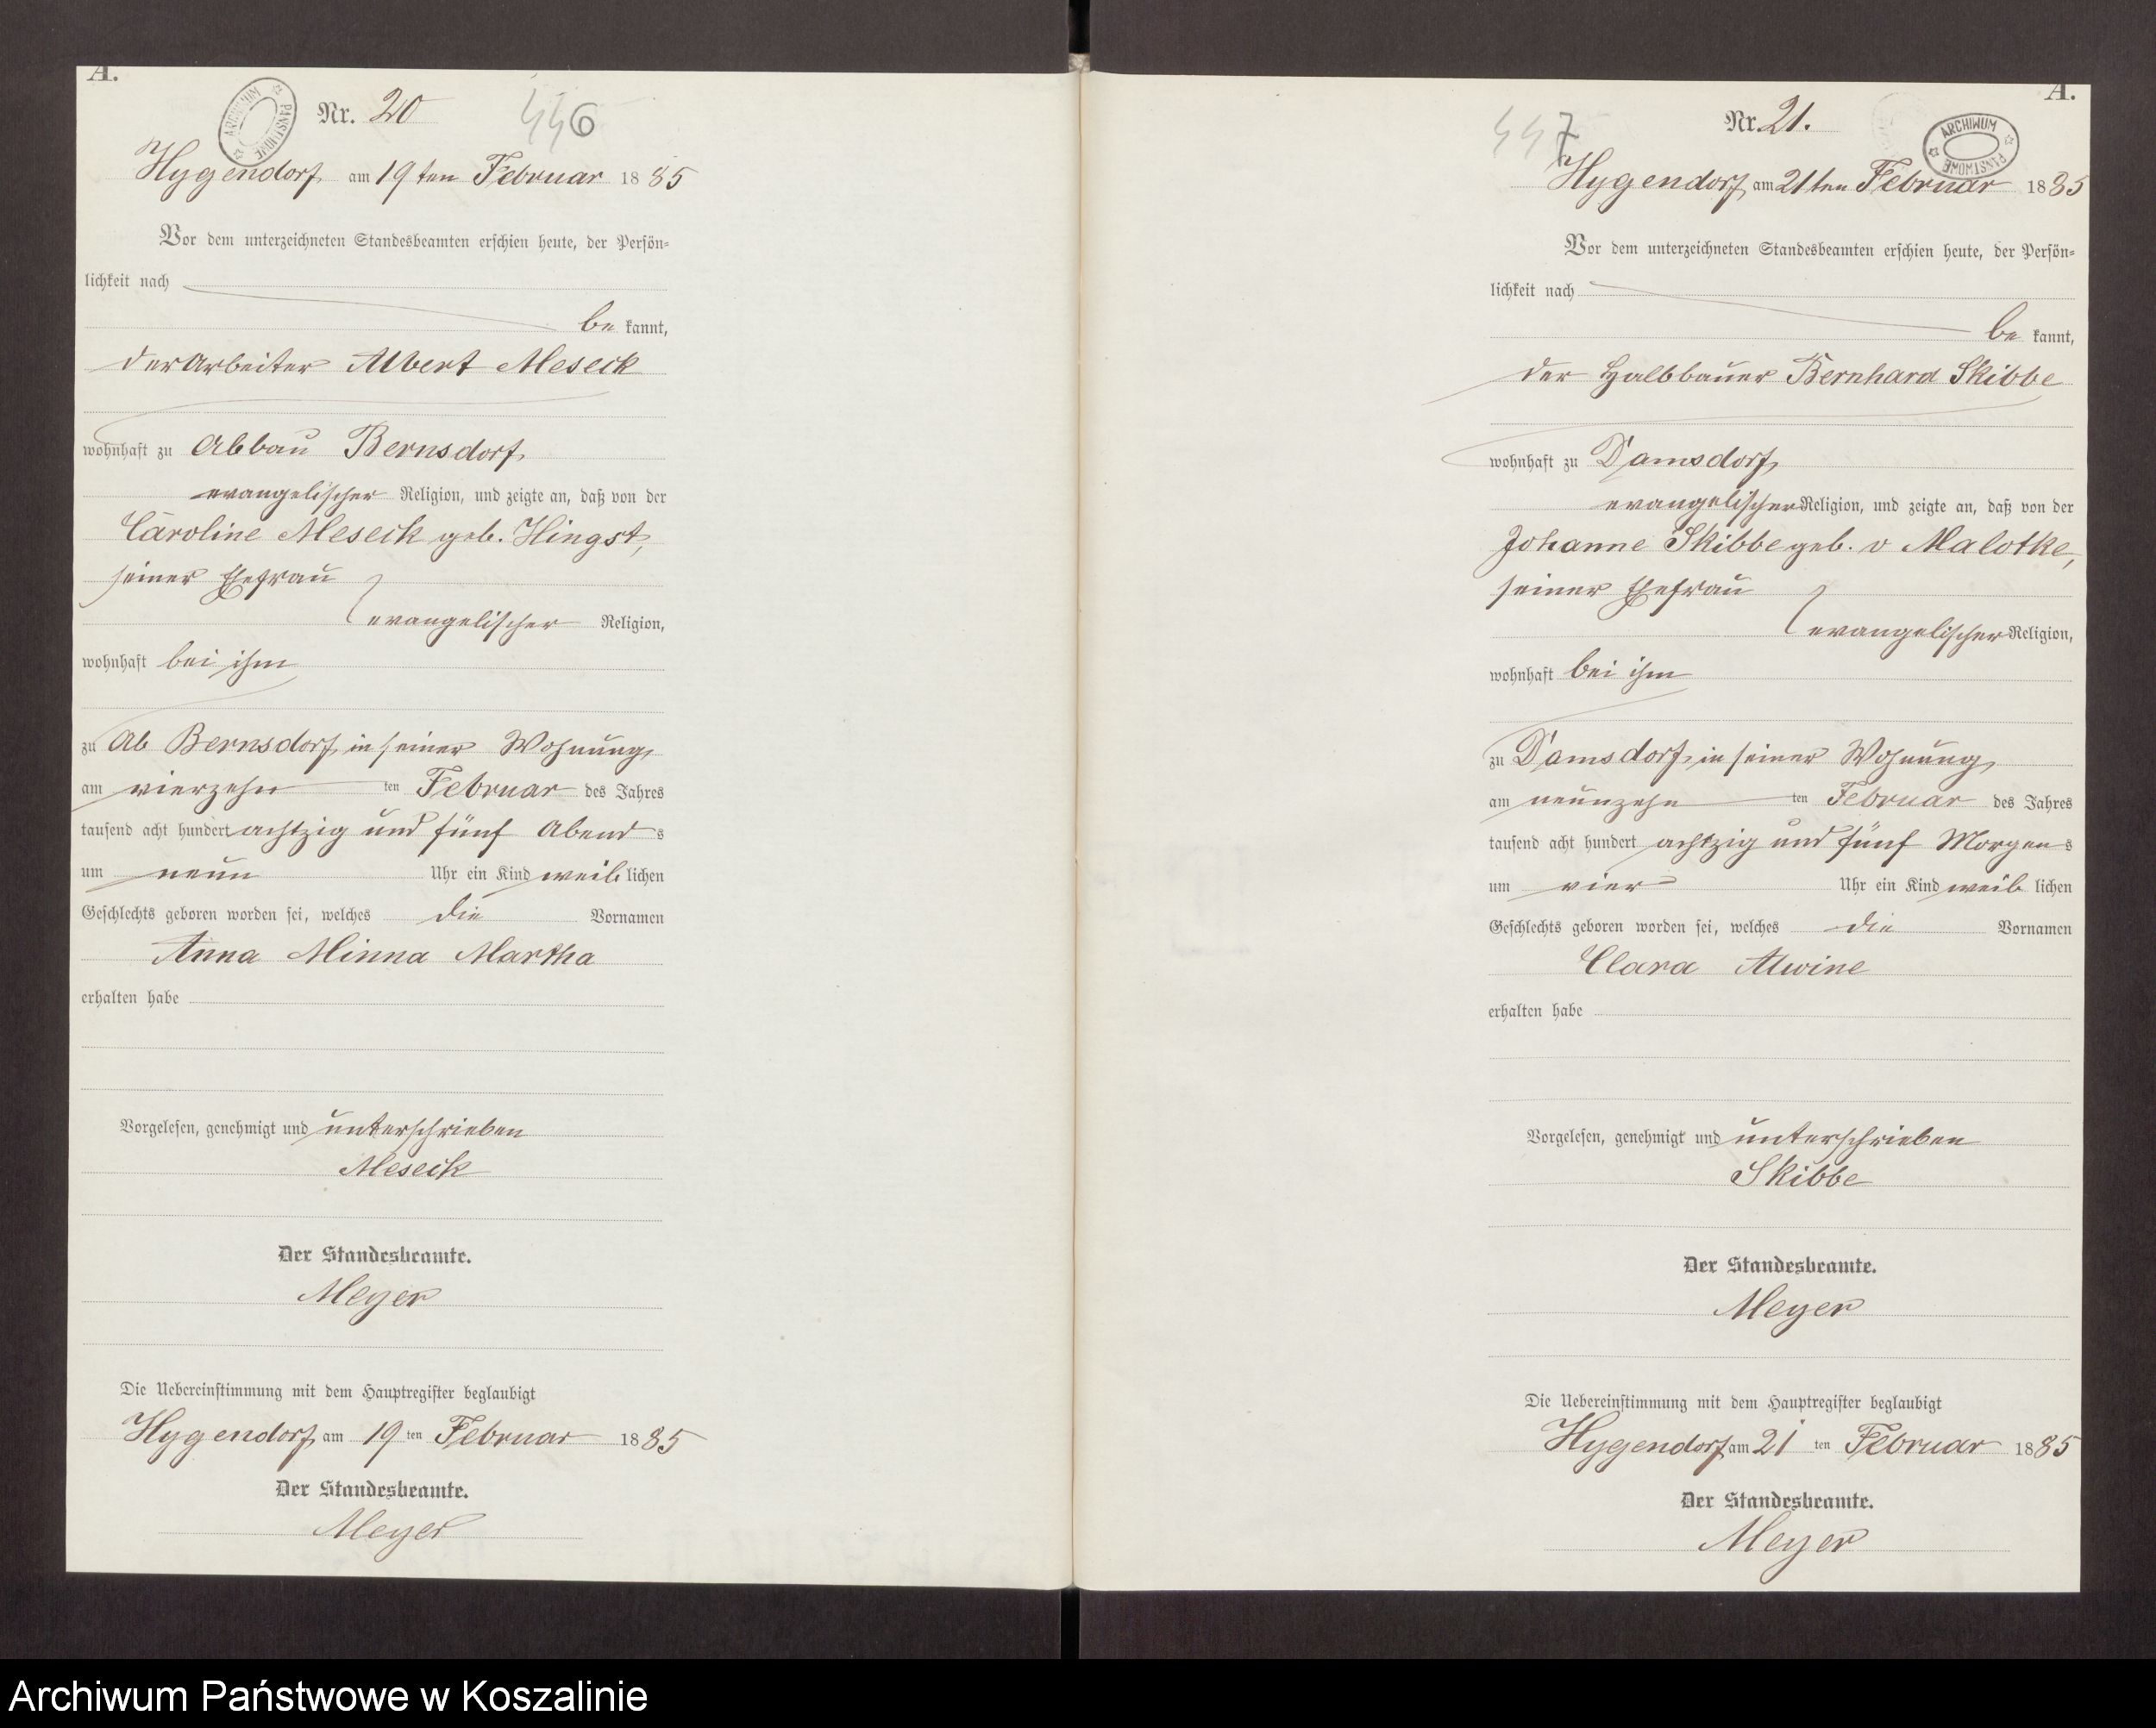 A.
ARCHIWUM PAŃSTWOWE
Nr. 20
446
Hygendorf am 19ten Februar 1885
Vor dem unterzeichneten Standesbeamten erschien heute, der Persön-
lichkeit nach
be kannt,
der Arbeiter Albert Meseck
wohnhaft zu Abbau Bernsdorf
evangelischer Religion, und zeigte an, daß von der
Caroline Meseck geb. Hingst,
seiner Ehefrau
evangelischer Religion,
wohnhaft bei ihm
zu Ab Bernsdorf, in seiner Wohnung,
am vierzehn ten Februar des Jahres
tausend acht hundert achtzig und fünf Abend s
um neun Uhr ein Kind weib lichen
Geschlechts geboren worden sei, welches die Vornamen
Anna Minna Martha
erhalten habe
Vorgelesen, genehmigt und unterschrieben
Meseck
Der Standesbeamte.
Meyer
Die Uebereinstimmung mit dem Hauptregister beglaubigt
Hygendorf, am 19 ten Februar 1885
Der Standesbeamte.
Meyer
A.
Nr. 21.
ARCHIWUM PAŃSTWOWE
447
Hygendorf, am 21ten Februar 1885
Vor dem unterzeichneten Standesbeamten erschien heute, der Persön-
lichkeit nach
be kannt,
der Halbbauer Bernhard Skibbe
wohnhaft zu Damsdorf,
evangelischer Religion, und zeigte an, daß von der
Johanne Skibbe geb. v Malotke,
seiner Ehefrau
evangelischer Religion,
wohnhaft bei ihm
zu Damsdorf, in seiner Wohnung,
am neunzehn ten Februar des Jahres
tausend acht hundert achtzig und fünf Morgen s
um vier Uhr ein Kind weib lichen
Geschlechts geboren worden sei, welches die Vornamen
Clara Alwine
erhalten habe
Vorgelesen, genehmigt und unterschrieben
Skibbe
Der Standesbeamte.
Meyer
Die Uebereinstimmung mit dem Hauptregister beglaubigt
Hygendorf, am 21 ten Februar 1885
Der Standesbeamte.
Meyer
Archiwum Państwowe w Koszalinie